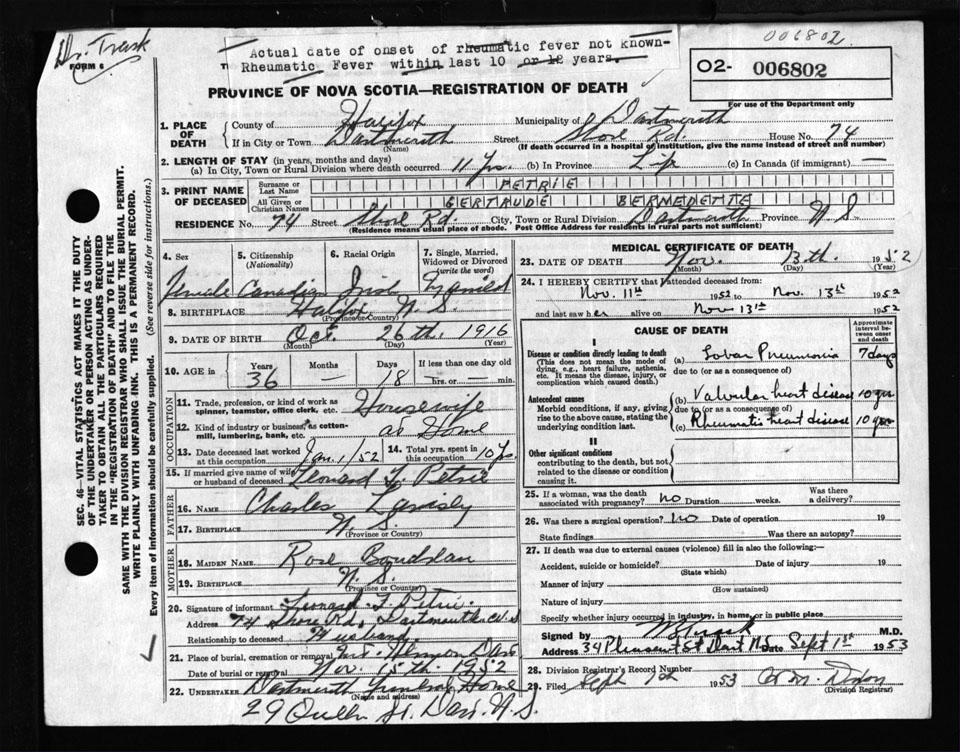 Dr. Trask
FORM 6
Actual date of onset of rheumatic fever not known-
Rheumatic Fever within last 10 or 12 years.
006802
02- 006802
For use of the Department only
PROVINCE OF NOVA SCOTIA—REGISTRATION OF DEATH
1. PLACE OF DEATH
County of Halifax Municipality of Dartmouth
If in City or Town Dartmouth Street Shore Rd. House No. 74
(Name) (If death occurred in a hospital or institution, give the name instead of street and number)
2. LENGTH OF STAY (in years, months and days)
(a) In City, Town or Rural Division where death occurred 11 Yrs. (b) In Province Life (c) In Canada (if immigrant) —
3. PRINT NAME OF DECEASED
Surname or Last Name PETRIE
All Given or Christian Names GERTRUDE BERNEDETTE
RESIDENCE No. 74 Street Shore Rd. City, Town or Rural Division Dartmouth Province N S
(Residence means usual place of abode. Post Office Address for residents in rural parts not sufficient)
4. Sex
Female
5. Citizenship (Nationality)
Canadian
6. Racial Origin
Irish
7. Single, Married, Widowed or Divorced (write the word)
Married
8. BIRTHPLACE Halifax N. S.
(Province or Country)
9. DATE OF BIRTH Oct. 26th. 1916
(Month) (Day) (Year)
10. AGE in
Years Months Days If less than one day old
36 — 18 hrs. or — min.
OCCUPATION
11. Trade, profession, or kind of work as spinner, teamster, office clerk, etc. Housewife
12. Kind of industry or business, as cotton-mill, lumbering, bank, etc. at Home
13. Date deceased last worked at this occupation Jan. 1/52 14. Total yrs. spent in this occupation 10 Yrs.
15. If married give name of wife or husband of deceased Leonard F. Petrie
FATHER
16. NAME Charles
17. BIRTHPLACE N. S.
(Province or Country)
MOTHER
18. MAIDEN NAME Rose
19. BIRTHPLACE N. S.
(Province or Country)
20. Signature of informant Leonard F. Petrie
Address 74 Shore Rd., Dartmouth N. S
Relationship to deceased Husband
21. Place of burial, cremation or removal Mt. Hermon Dart
Date of burial or removal Nov. 15th. 1952
22. UNDERTAKER Dartmouth Funeral Home
(Name and address)
29 Queen St. Dart. N. S.
MEDICAL CERTIFICATE OF DEATH
23. DATE OF DEATH Nov. 13th. 1952
(Month) (Day) (Year)
24. I HEREBY CERTIFY that I attended deceased from:
Nov. 11th 1952 to Nov. 13th 1952
and last saw her alive on Nov 13th 1952
CAUSE OF DEATH
Approximate interval between onset and death
I
Disease or condition directly leading to death
(This does not mean the mode of dying, e.g., heart failure, asthenia, etc. It means the disease, injury, or complication which caused death.)
(a) Lobar Pneumonia 7 days
due to (or as a consequence of)
Antecedent causes
Morbid conditions, if any, giving rise to the above cause, stating the underlying condition last.
(b) Valvular heart disease 10 yrs
due to (or as a consequence of)
(c) Rheumatic heart disease 10 yrs
II
Other significant conditions
contributing to the death, but not related to the disease or condition causing it.
25. If a woman, was the death associated with pregnancy? no Duration weeks. Was there a delivery?
26. Was there a surgical operation? no Date of operation 19
State findings Was there an autopsy?
27. If death was due to external causes (violence) fill in also the following:—
Accident, suicide or homicide? Date of injury 19
(State which)
Manner of injury
(How sustained)
Nature of injury
Specify whether injury occurred in industry, in home, or in public place
Signed by M.D.
Address 34 Pleasant St Dart N.S Date Sept 1st 1953
28. Division Registrar's Record Number
29. Filed Sept 1953
(Division Registrar)
SEC. 46—VITAL STATISTICS ACT MAKES IT THE DUTY
OF THE UNDERTAKER OR PERSON ACTING AS UNDER-
TAKER TO OBTAIN ALL THE PARTICULARS REQUIRED
IN THE "REGISTRATION OF DEATH" AND TO FILE THE
SAME WITH THE DIVISION REGISTRAR WHO SHALL ISSUE THE BURIAL PERMIT.
WRITE PLAINLY WITH UNFADING INK. THIS IS A PERMANENT RECORD.
Every item of information should be carefully supplied. (See reverse side for instructions.)